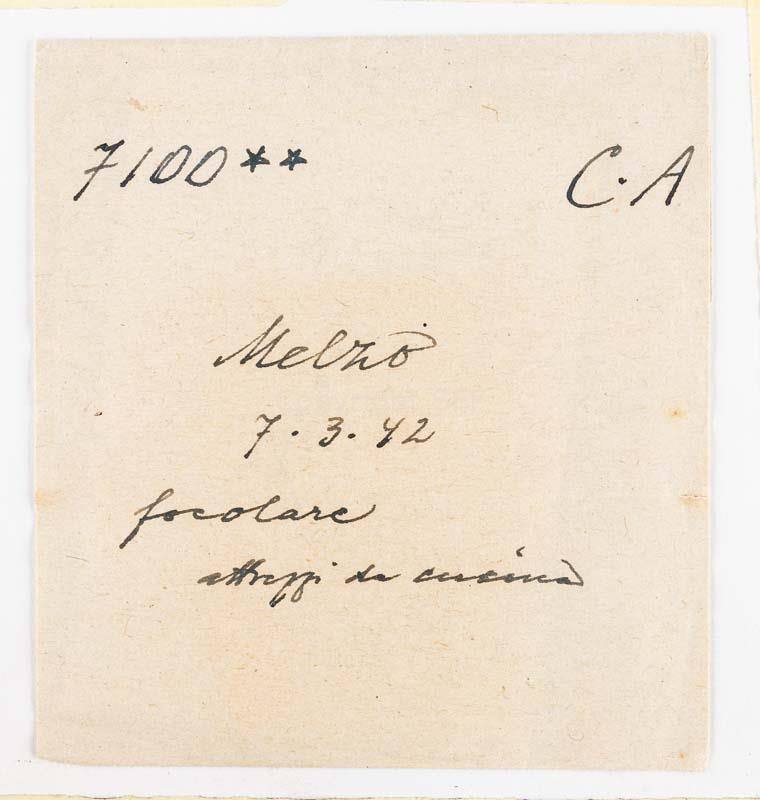 7100** C.A
Melzo
7.3.42
focolare
attrezzi da cucina